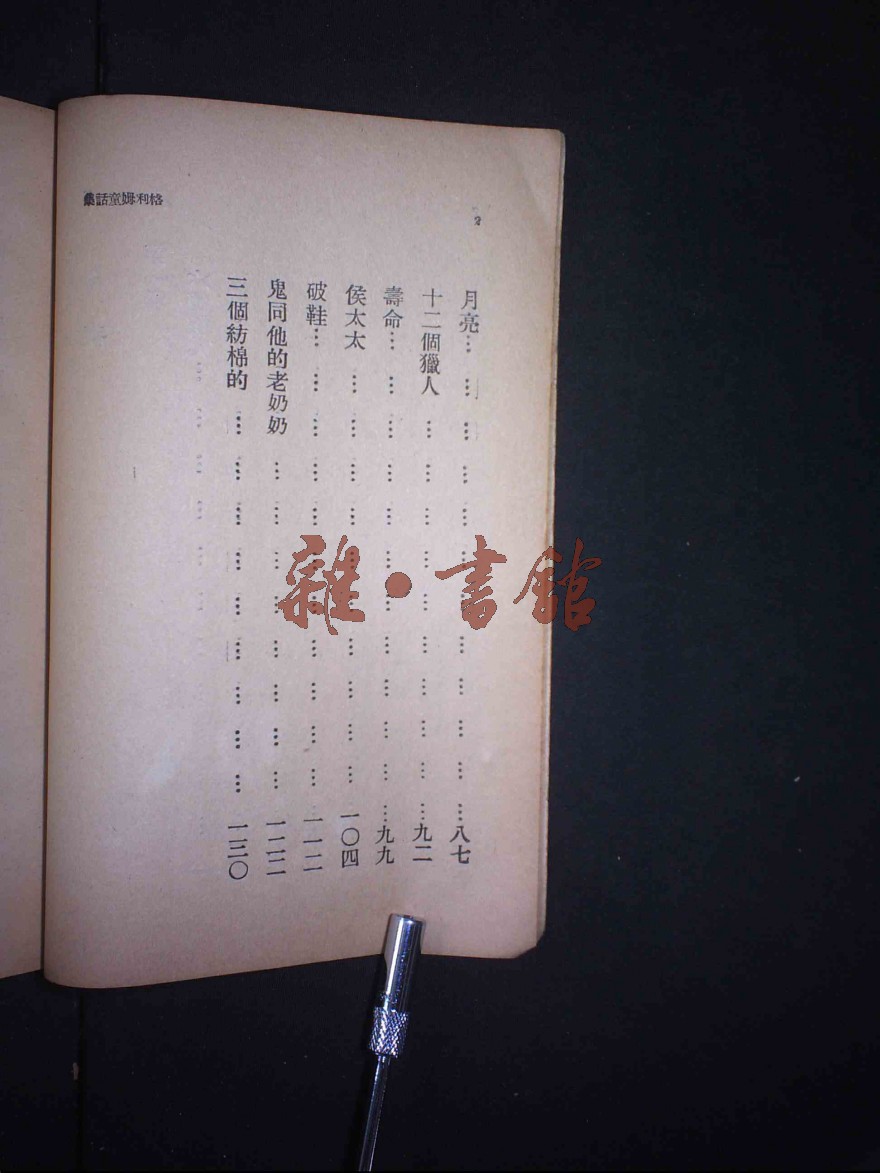 格利姆童話集
2
月亮…………………………八七
十二個獵人…………………………九二
壽命…………………………九九
侯太太…………………………一〇四
破鞋…………………………一一二
鬼同他的老奶奶…………………………一二二
三個紡棉的…………………………一三〇
雜·書館